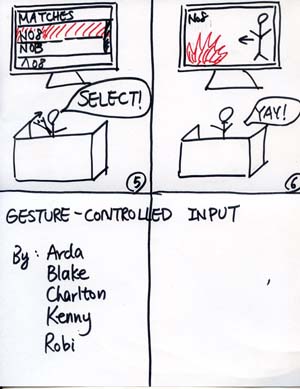 MATCHES
NO8
NOB
^08
SELECT!
5
No8
YAY!
6
GESTURE-CONTROLLED INPUT
By: Arda
Blake
Charlton
Kenny
Robi